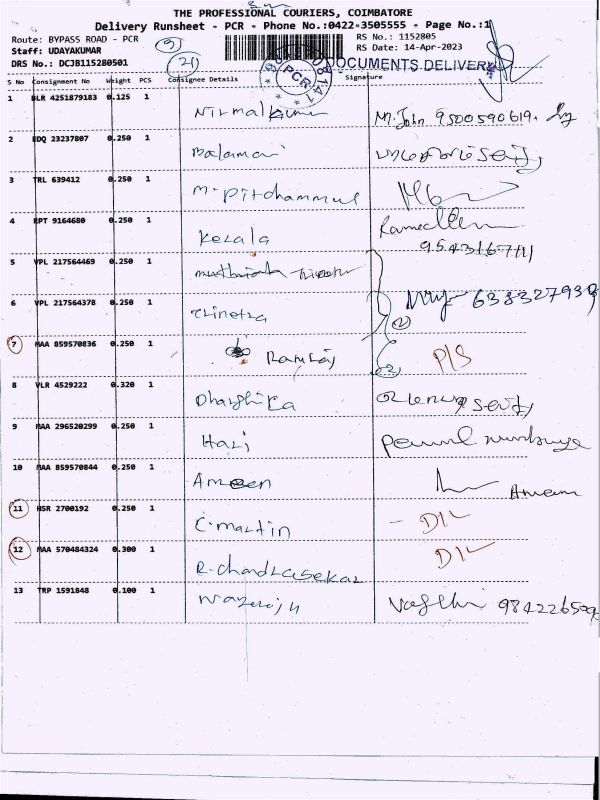 THE PROFESSIONAL COURIERS, COIMBATORE
Delivery Runsheet - PCR - Phone No.:0422-3505555 - Page No.:1
Route: BYPASS ROAD - PCR
RS No.: 1152805
Staff: UDAYAKUMAR
RS Date: 14-Apr-2023
DRS No.: DCJB115280501
DOCUMENTS DELIVERY
PCR
S No Consignment No Weight PCS Consignee Details Signature
1 BLR 4251879183 0.125 1 Nirmalkumar M. John 9500590619.
2 EDQ 23237807 0.250 1 Balamani
3 TRL 639412 0.250 1 M. Pitchammal
4 RPT 9164680 0.250 1 Kerala
5 VPL 217564469 0.250 1
6 VPL 217564378 0.250 1 Trinetra
7 MAA 859570836 0.250 1 Ramraj P/S
8 VLR 4529222 0.320 1 Dharshika
9 MAA 296520299 0.250 1 Hari
10 MAA 859570844 0.250 1 Ameen Ameen
11 HSR 2700192 0.250 1 C. Martin - D/L
12 MAA 570484324 0.300 1 R. Chandrasekar D/L
13 TRP 1591848 0.100 1